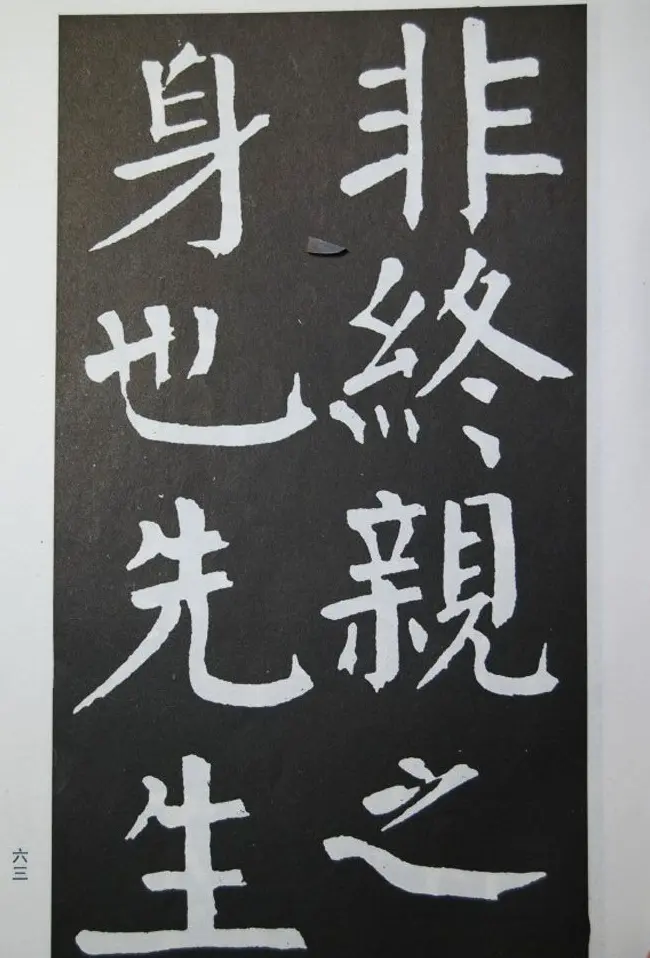 非終親之
身也先生
六三